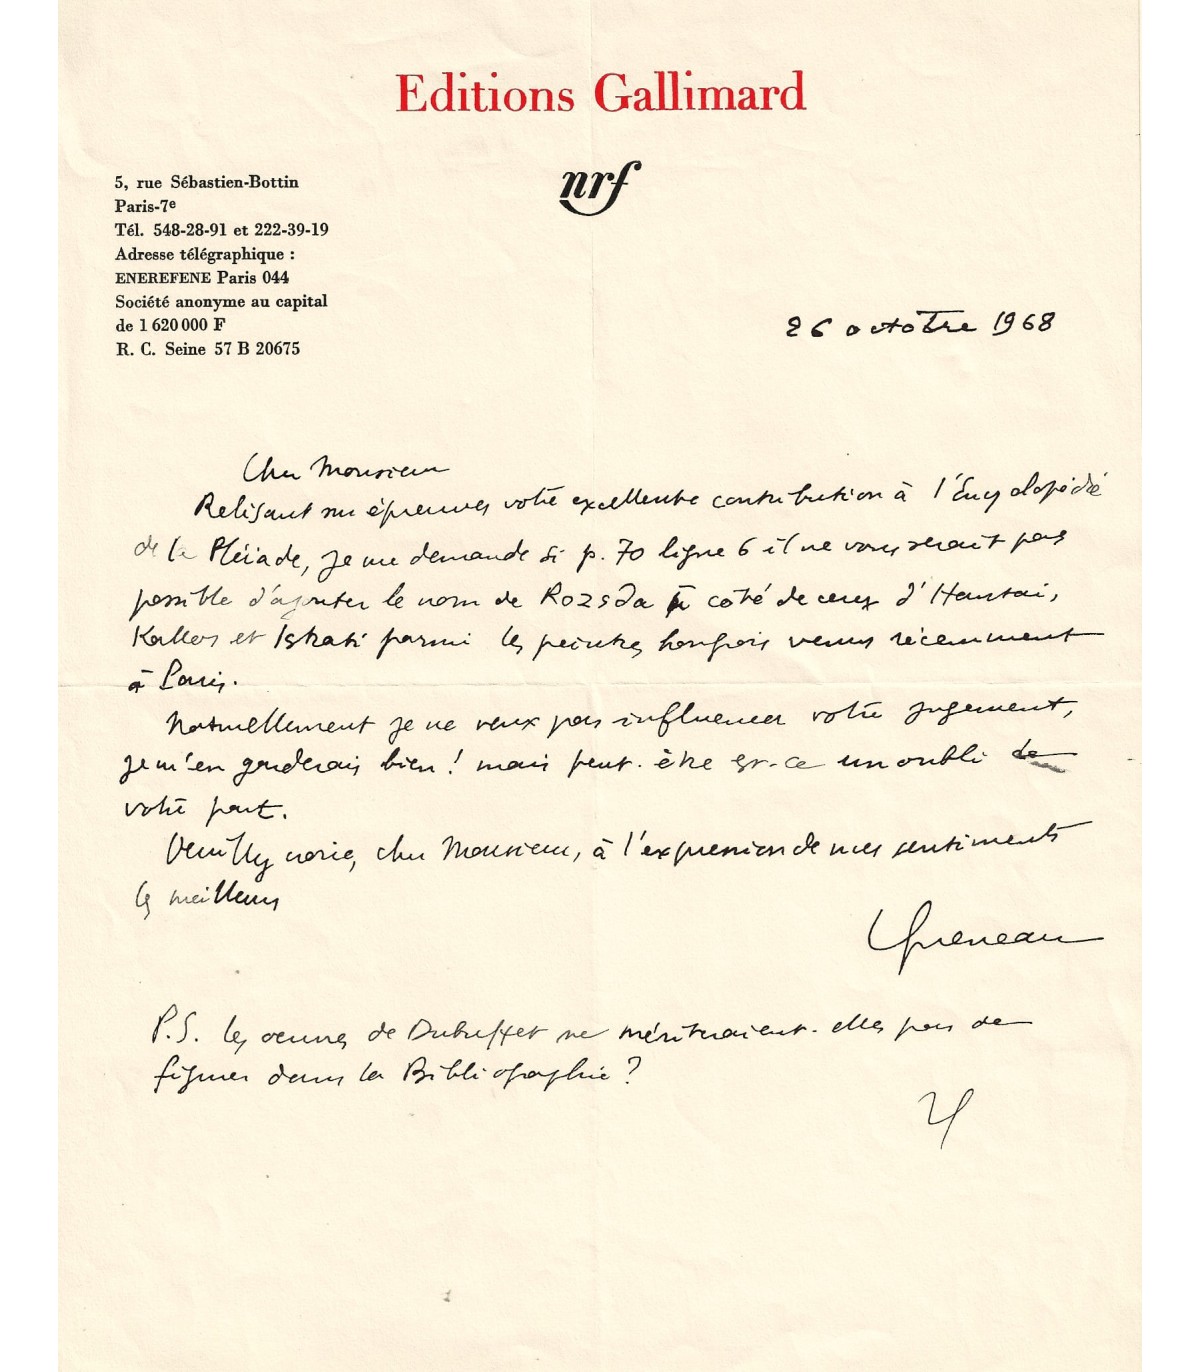 Editions Gallimard
nrf
5, rue Sébastien-Bottin
Paris-7e
Tél. 548-28-91 et 222-39-19
Adresse télégraphique :
ENEREFENE Paris 044
Société anonyme au capital
de 1 620 000 F
R. C. Seine 57 B 20675
26 octobre 1968
Cher Monsieur
Relisant sur épreuves votre excellente contribution à l'Encyclopédie
de la Pléiade, je me demande si p. 70 ligne 6 il ne vous serait pas
possible d'ajouter le nom de Rozsda à côté de ceux d'Hantaï,
Kallos et Istrati parmi les peintres hongrois venus récemment
à Paris.
Naturellement je ne veux pas influencer votre jugement,
je m'en garderais bien ! mais peut-être est-ce un oubli de
votre part.
Veuillez croire, cher Monsieur, à l'expression de mes sentiments
les meilleurs
Queneau
P.S. les œuvres de Dubuffet ne mériteraient-elles pas de
figurer dans la Bibliographie ?